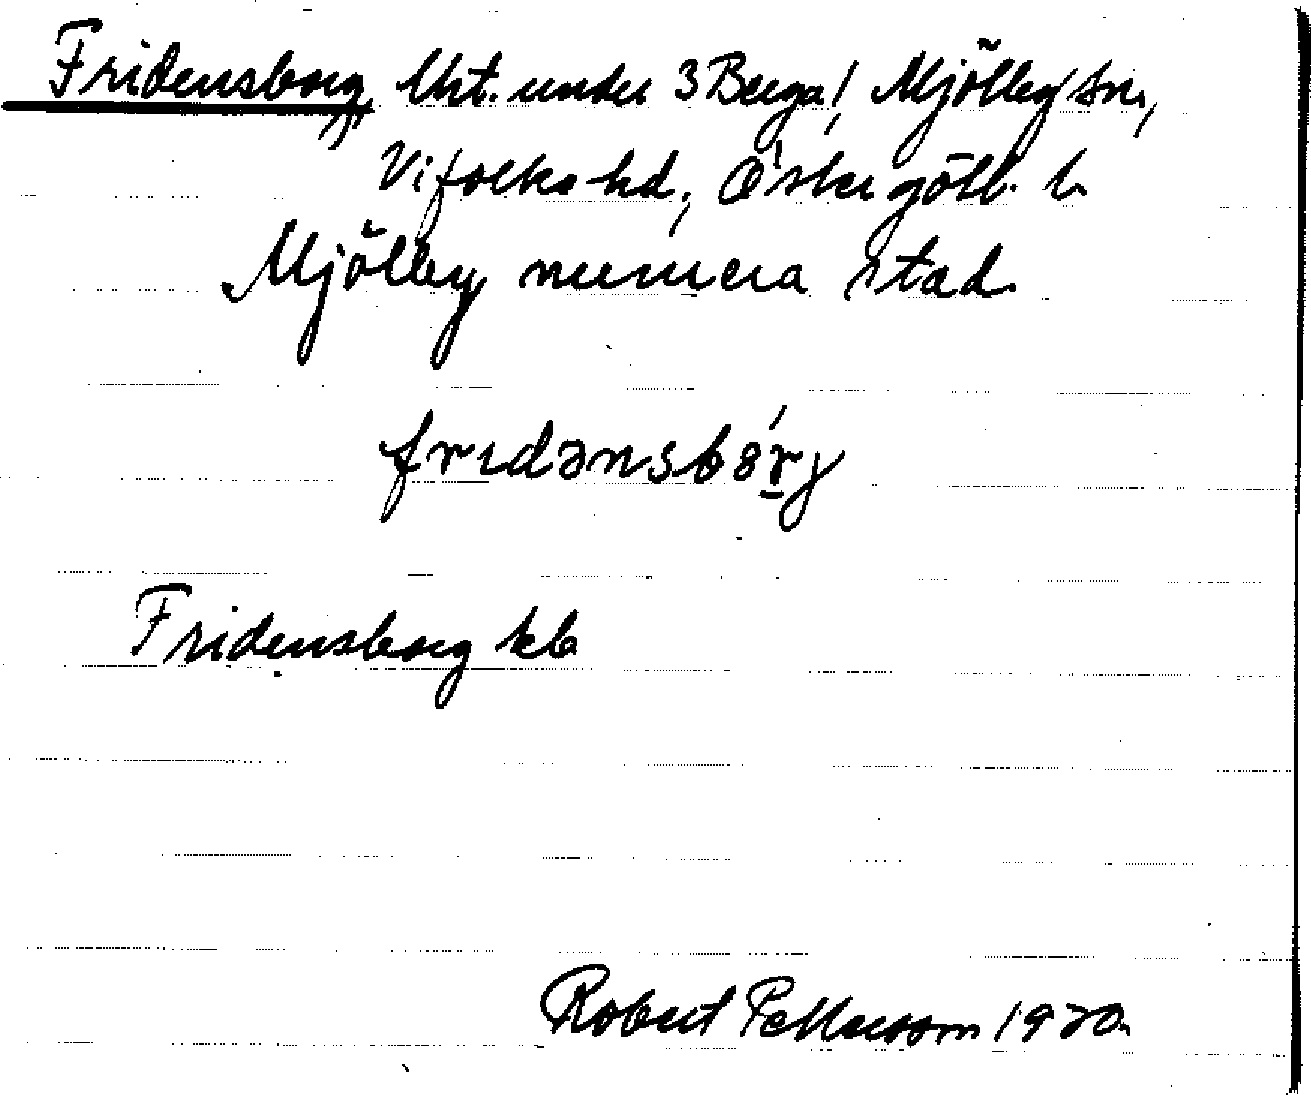 Fridensborg, lht. under 3 Berga, Mjölby sn,
Vifolka hd, Östergötl. l.
Mjölby numera stad.
fridənsbórj
Fridensborg kb
Robert Pettersson 1920